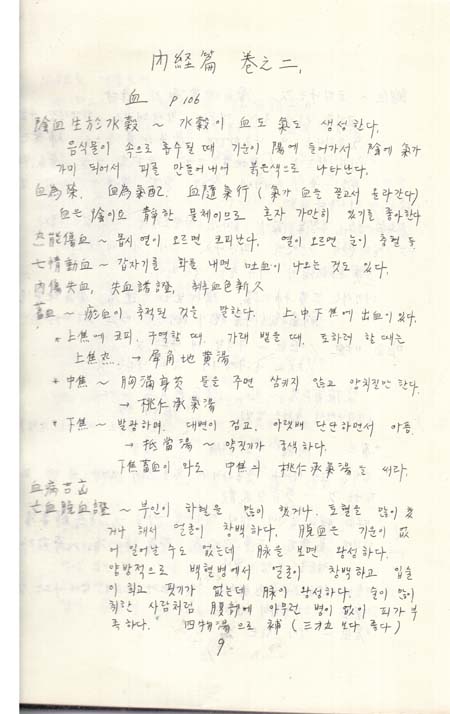 內経篇 卷之二,
血 p 106
陰血生於水穀 ~ 水穀이 血도 氣도 생성한다,
음식물이 속으로 흡수될 때 기운이 陽에 들어가서 陰에 氣가
가미 되어서 피를 만들어내어 붉은색으로 나타난다.
血為榮, 血為氣配, 血隨氣行 (氣가 血을 끌고서 올라간다)
血은 陰이요 靜한 물체이므로 혼자 가만히 있기를 좋아한다
热能傷血 ~ 몹시 열이 오르면 코피난다, 열이 오르면 눈이 충혈 등
七情動血 ~ 갑자기 화를 내면 吐血이 나오는 것도 있다,
內傷失血, 失血諸證, 血色新久
蓄血 ~ 瘀血이 축적된 것을 말한다. 上,中下焦에 出血이 있다.
* 上焦에 코피, 구역할 때, 가래 뱉을 때, 토하려 할 때는
上焦热. → 犀角地黄湯
* 中焦 ~ 胸滿 물을 주면 삼키지 않고 양치질만 한다.
→ 桃仁承氣湯
* 下焦 ~ 발광하며, 대변이 검고, 아랫배 단단하면서 아픔
→ 抵當湯 ~ 약찌기가 흑색하다.
下焦蓄血이 라도 中焦의 桃仁承氣湯을 써라.
血病吉凶
亡血脫血證 ~ 부인이 하혈을 많이 했거나, 토혈을 많이 했
거나 해서 얼굴이 창백하다, 脫血은 기운이 없
어 일어날 수도 없는데 脉을 보면 왕성하다.
양방적으로 백혈병에서 얼굴이 창백하고 입술
이 희고 핏기가 없는데 脉이 왕성하다. 술이 많이
취한 사람처럼 腹部에 아무런 병이 없이 피가 부
족하다. 四物湯으로 補 (三才丸 보다 좋다)
9